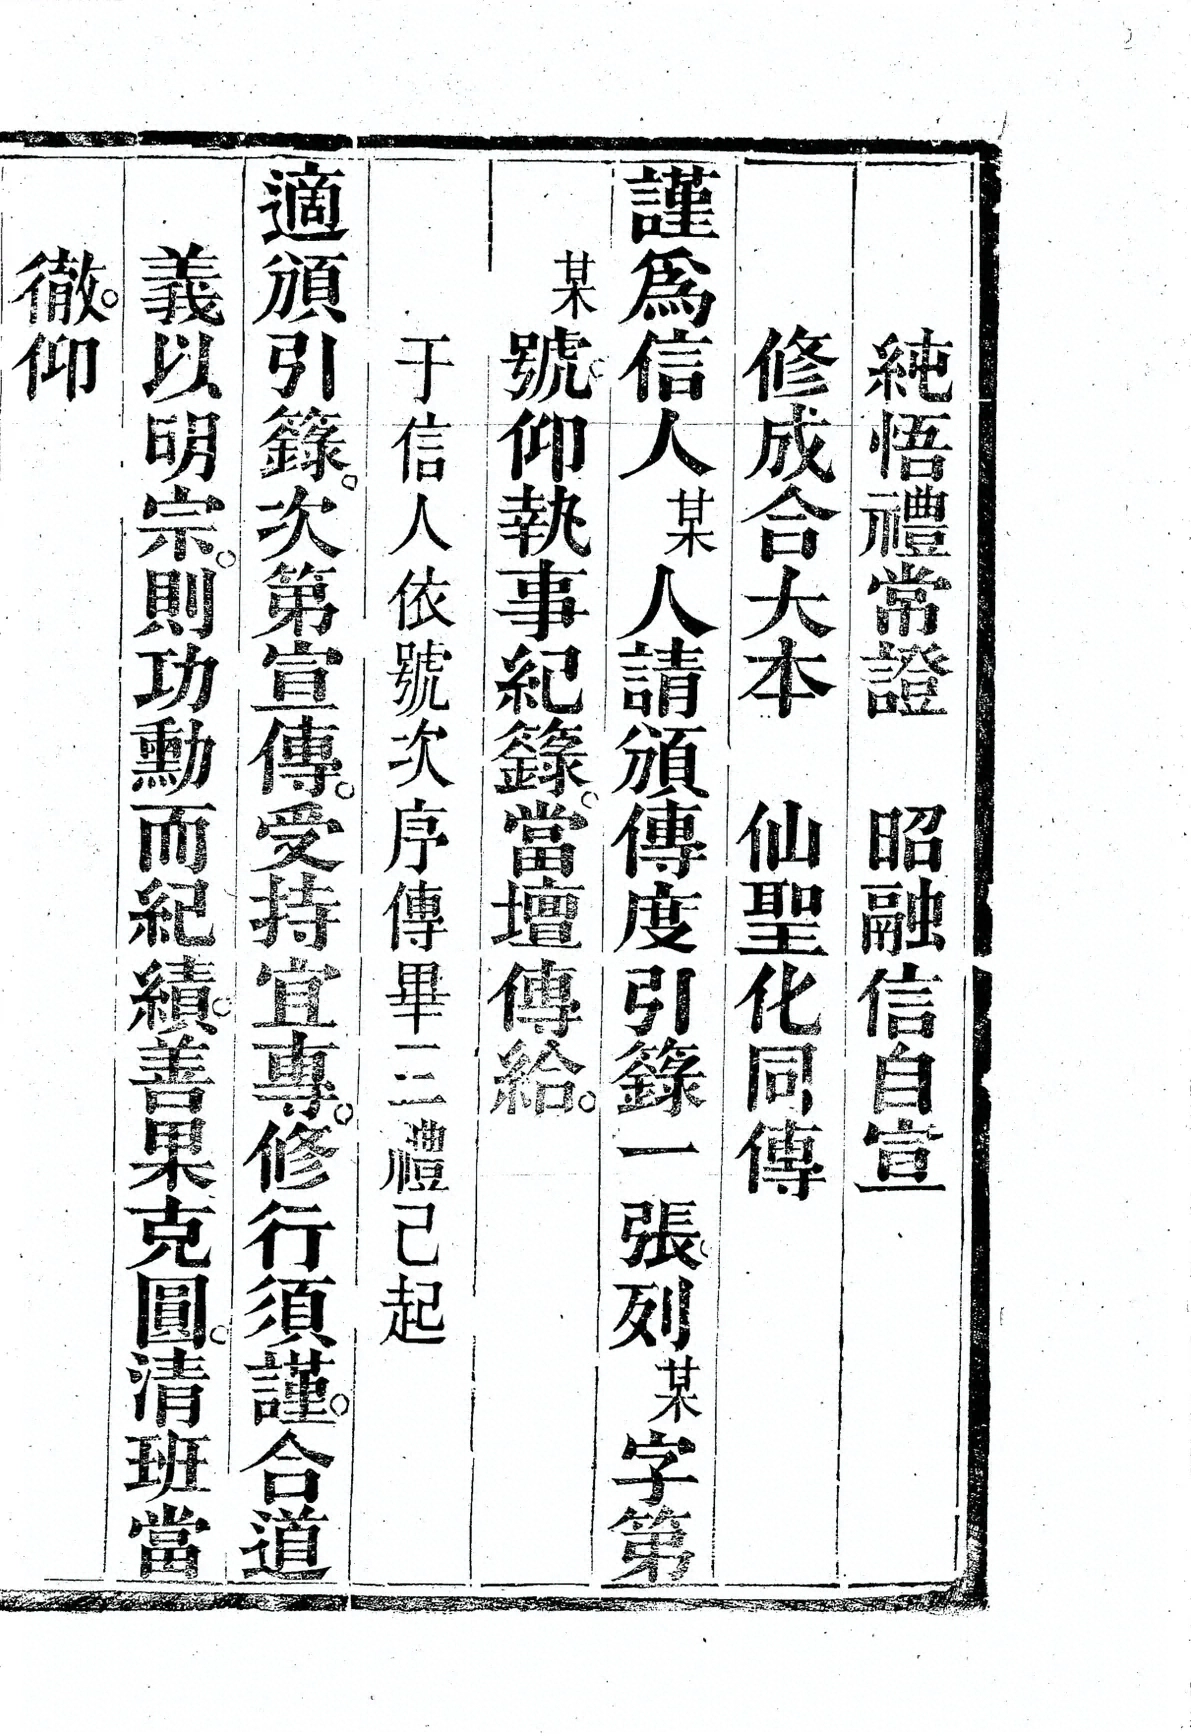 純悟禮常證　昭融信自宣
修成合大本　仙聖化同傳
謹爲信人某人請頒傳度引籙一張。列某字第
某號。仰執事紀錄。當壇傳給。
于信人依號次序傳畢三禮己起
適頒引籙。次第宣傳。受持宜專。修行須謹。合道
義以明宗。則功勳而紀績。善果克圓。清班當
徹。仰